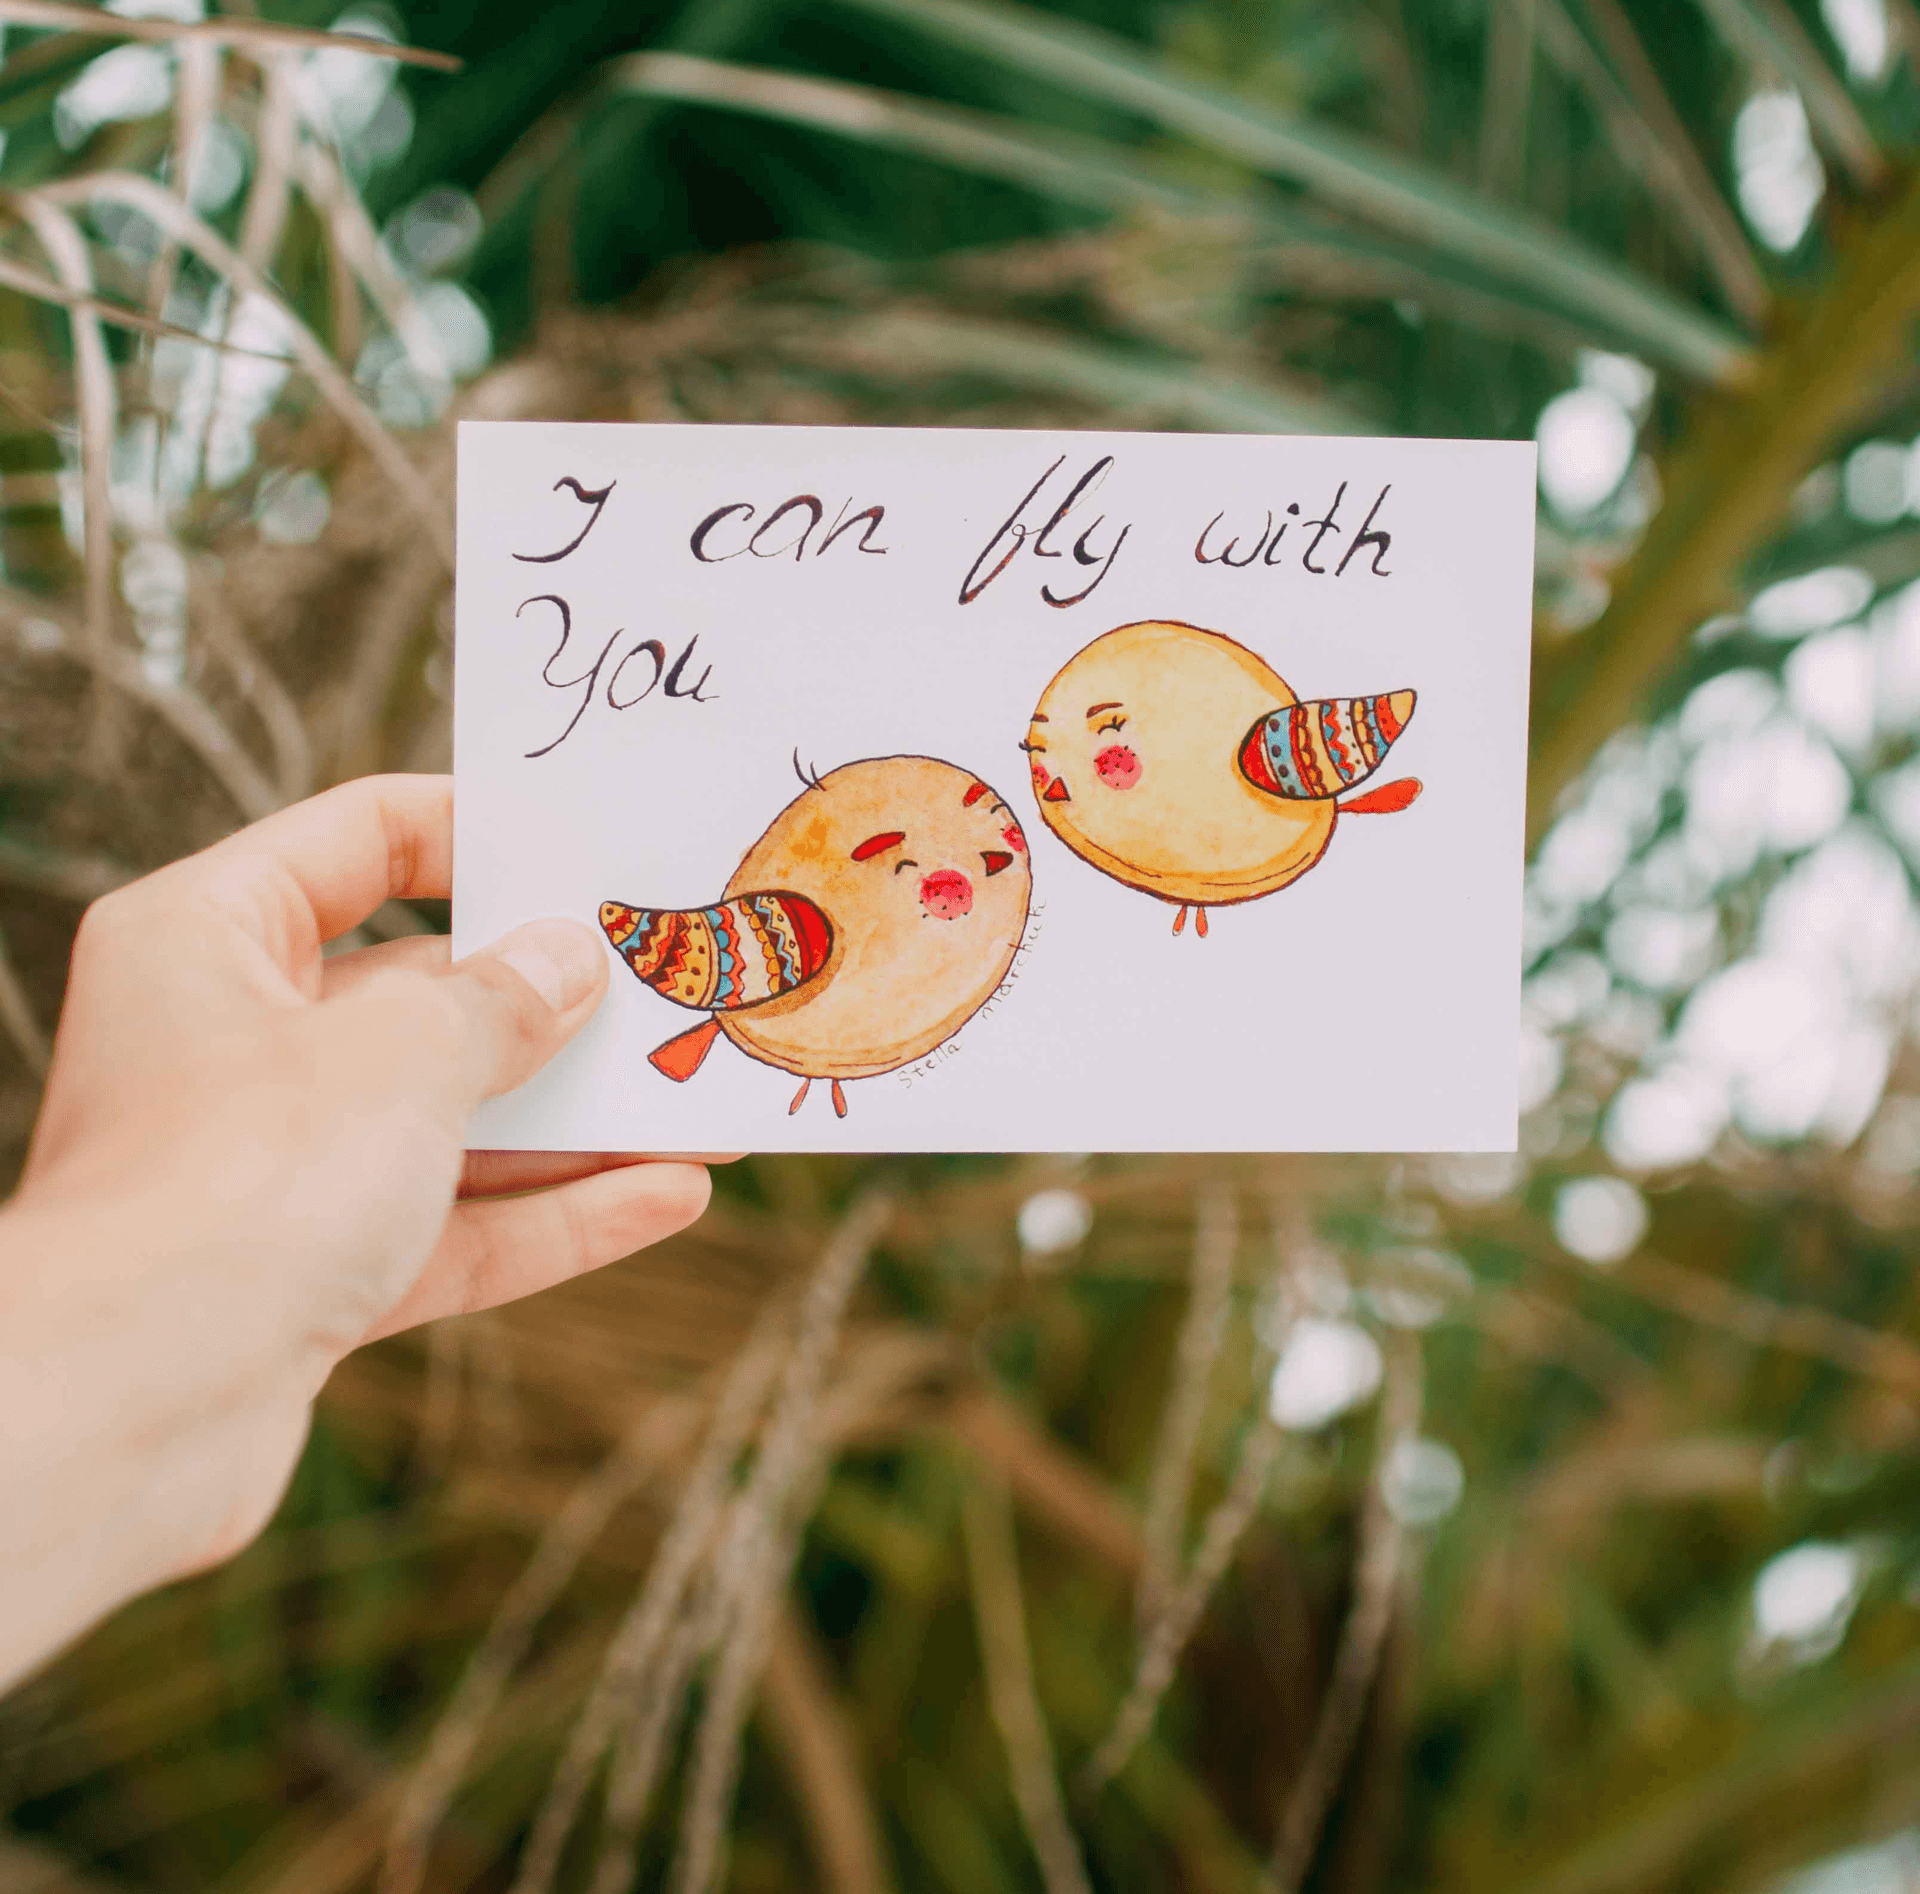 I can fly with
You
Stella Marchuk